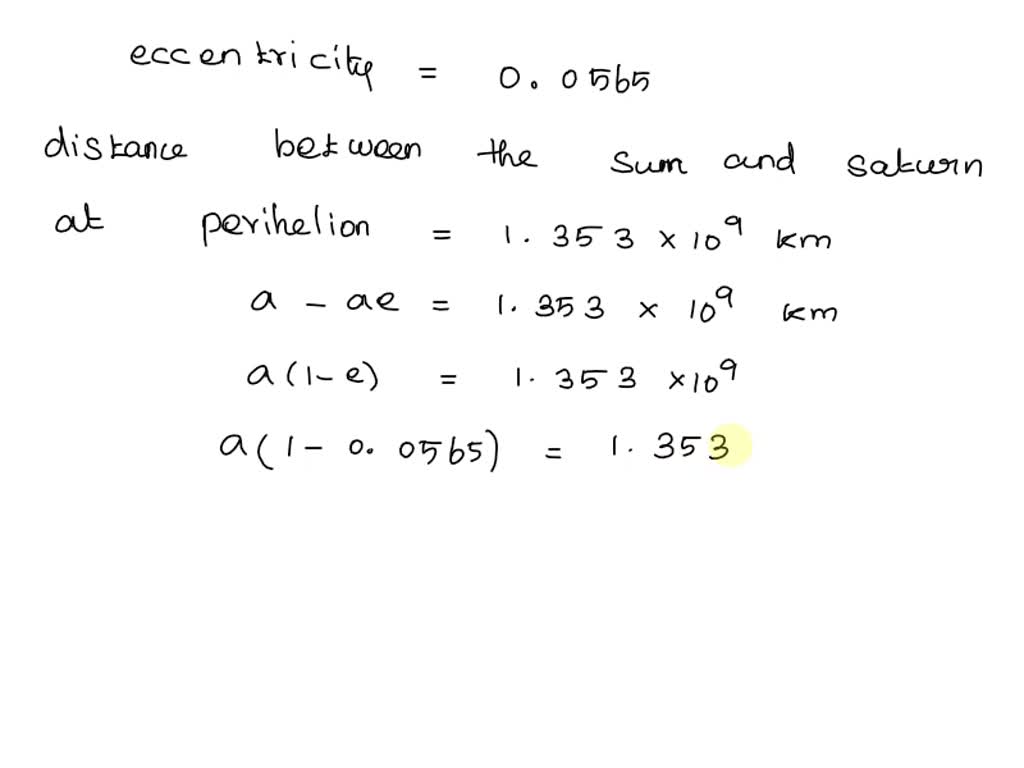 eccentricity = 0.0565
distance between the sum and saturn
at perihelion = 1.353 × 10⁹ km
a - ae = 1.353 × 10⁹ km
a(1-e) = 1.353 × 10⁹
a(1- 0.0565) = 1.353